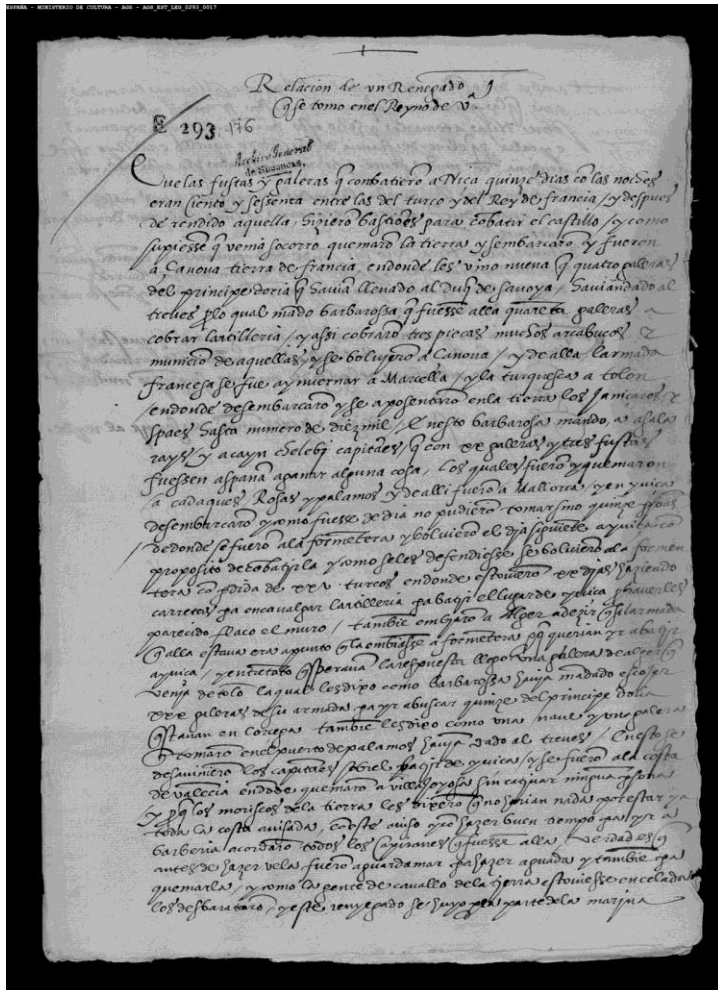 ESPAÑA - MINISTERIO DE CULTURA - AGS - AGS_EST_LEG_0293_0017
Relacion de vn Renegado
q̃ se tomo en el Reyno de Vᵃ
E 293 176
Archivo General
de Simancas
Que las fustas y galeras q̃ conbatierõ a Niça quinze dias cõ las noches
eran ciento y sessenta entre las del turco y del Rey de francia / y despues
de rendido aquella, hizierõ bastiões para cõbatir el castillo / y como
supiesse q̃ venia socorro quemarõ la tierra y sembarcarõ, y fueron
a Canova tierra de francia, endonde les vino nueva q̃ quatro galeras
del principe doria q̃ havian llevado al Duq̃ de savoya / havian dado al
treves / p lo qual mãdo barbarossa q̃ fuesse alla quarẽta galeras a
cobrar lartilleria / y assi cobrarõ tres pieças muchos arcabuces &
municiõ de aquellas, y se bolvierõ a Canova / y de alla larmada
francesa se fue a ynvernar a Marcella / y la turquesca a tolon
/ endonde desembarcarõ y se aposentarõ en la tierra los Janicaros &
spaes hasta numero de diez mil / En esto barbarosa mando, a
rays y a cayn chelebi capitães / q̃ con xx galeras y tres fustas
fuessen a spaña a ganar alguna cosa / Los quales fuerõ y quemaron
/ a cadaques Rosas y palamos y de alli fuerõ a Mallorca / y en yviça
desembarcarõ y como fuesse de dia no pudierõ tomar sino quinze
de donde se fuerõ ala formẽtera y bolvierõ el dia siguiẽte a yviça cõ
proposito de cõbatirla y como se les defendiesse se bolvierõ ala formen
tera cõ pdida de xxv turcos endonde estovierõ xx dias haziendo
carretos pa encavalgar lartilleria pa batir el lugar de yviça p haverles
parecido flaco el muro / tambiẽ embiarõ a Alger a dezir q̃ si larmada
q̃ alla estava era apunto q̃ la embiasse a formẽtera pq̃ querian yr a batir
a yviça / y entretãto q̃ speravã la respuesta llego vna galera de
venia de tolõ laqual les dixo como barbarossa havia mãdado escojer
xxx galeras de su armada pa yr a buscar quinze del principe doria
q̃ stavan en / tambiẽ les dixo como vna nave y vna galera
q̃ tomarõ en el puerto de palamos havian dado al treves / En esto se
desavinierõ los capitães sobrel batir de yviça / y se fuerõ ala costa
de valẽcia endõde quemarõ a villa joyosa sin cativar ningũa psona
Y pq̃ los moriscos de la tierra les dixerõ q̃ no harian nada por estar ya
toda la costa avisada, cõ este aviso y cõ hazer buen tiempo pa yr a
barberia acordarõ todos los capitanes q̃ fuesse alla / verdad es q̃
antes de hazer vela fuerõ a guardamar pa hazer aguada y tambiẽ pa
quemarla / y como la gente de cavallo de la tierra estoviesse en celada
los desbaratarõ, y este renyegado se huyo pa parte de la marina